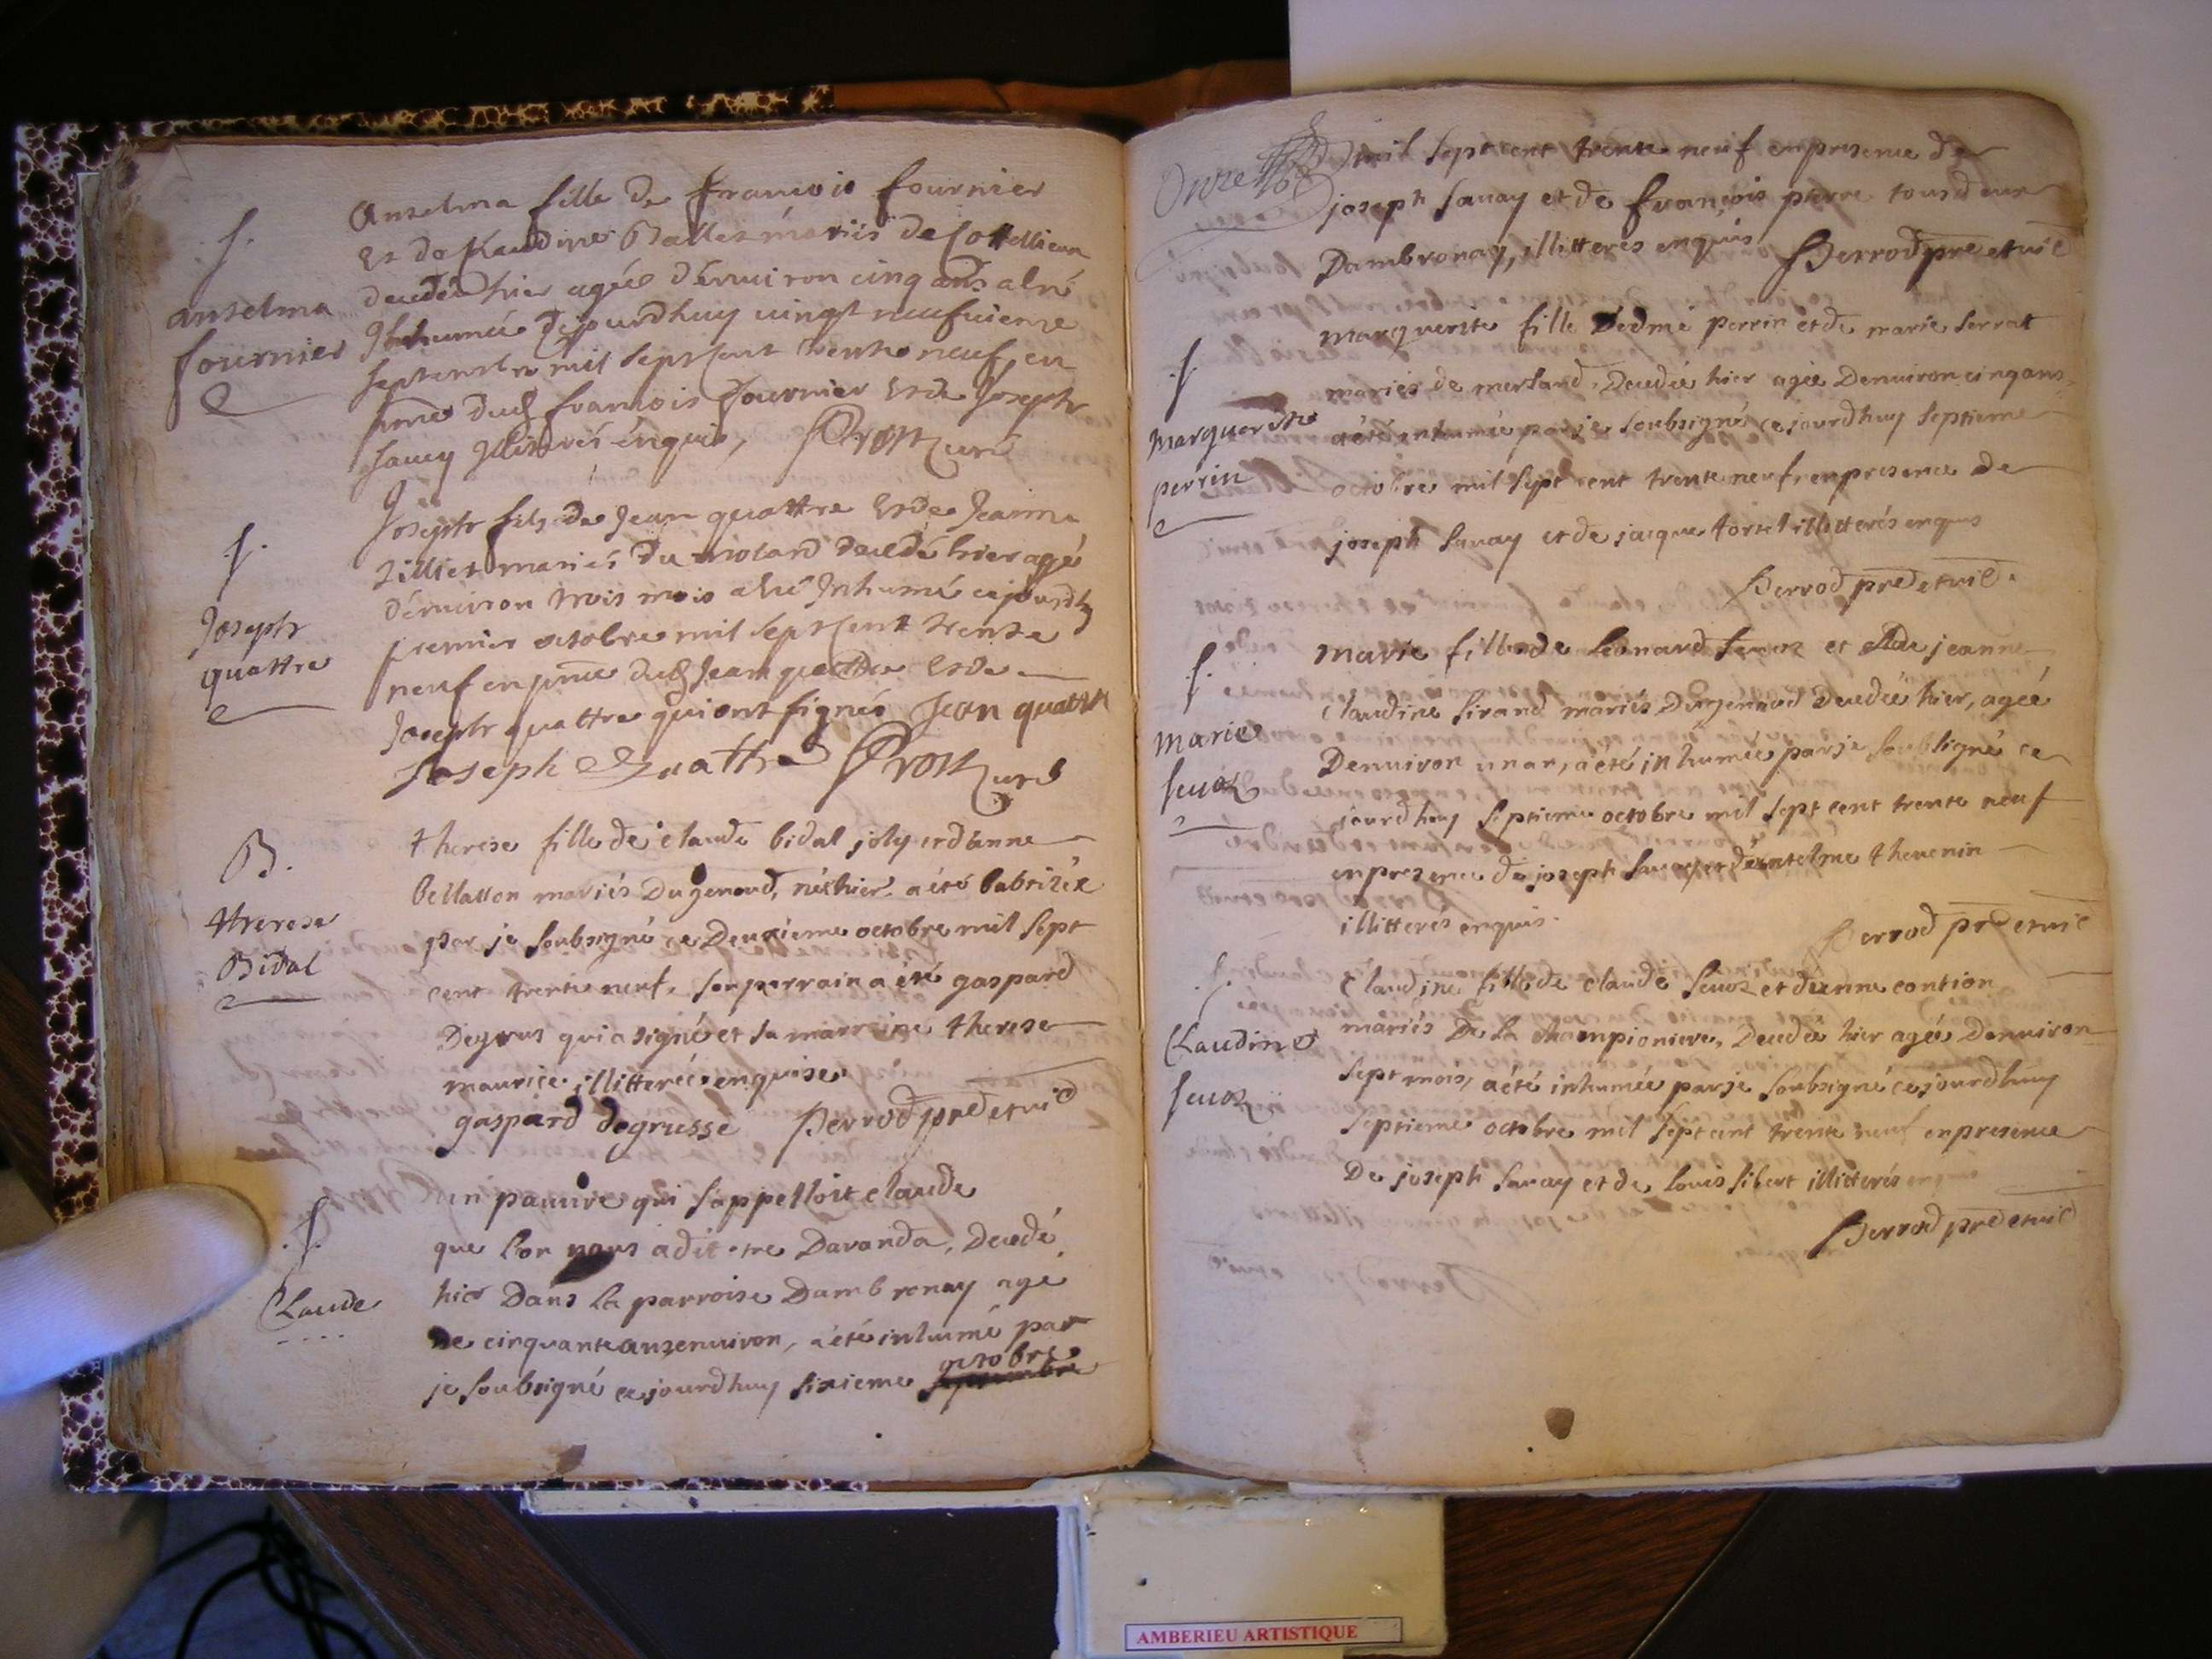 f.
anselma
fournier
Anselma fille de francois fournier
et de Claudine Ballet mariés de Cottellieux
decedée hier agée d'énuiron cinq ans a été
Inhumée cejourdhuy uingt neufuieme
septembre mil sept cent trente neuf en
pnce dud francois fournier et de Joseph
sauey Illitterés énquis, Prost curé
f.
Joseph
quattre
Joseph fils de Jean quattre et de Jeanne
Zilliet mariés du molard decedé hier agé
d'énuiron trois mois a été Inhumé cejourdh
premier octobre mil sept cent trente
neuf en pnce dud Jean quattre et de
Joseph quattre qui ont signés Jean quattre
Joseph Quattre Prost curé
B.
therese
Bidal
therese fille de claude bidal joly et d'anne
bellatton mariés du genoud, née hier a été babtisée
par je soubsigné ce Deuxieme octobre mil sept
cent trente neuf, son parrain a été gaspard
Degrus qui a signé et sa marraine therese
maurice illitterée enquise
gaspard degrusse Perrod pre et vic
f.
Claude
un pauure qui s'appelloit claude
que l'on nous a dit etre Daranda, Decedé
hier Dans la parroise Dambronay agé
de cinquante ans enuiron, a été inhumé par
je soubsigné ce jourdhuy sixieme septembre
octobre
Onze
mil sept cent trente neuf en presence de
joseph sauay et de francois pierre tous deux
Dambronay, illitterés enquis Perrod pre et vic
f
Marguerite
perrin
marguerite fille d'edme perrin et de marie serrat
mariés de merland, Decedée hier agée Denuiron cinq ans
a été inhumée par je soubsigné ce jourdhuy septieme
octobre mil sept cent trente neuf, en presence de
joseph sauay et de jacque tortel illitterés enquis
Perrod pre et vic.
f.
Marie
seuoz
marie fille de Leonard seuoz et de jeanne
claudine sirand mariés Du genoud Decedée hier, agée
Denuiron un an, a été inhumée par je soubsigné ce
jourdhuy septieme octobre mil sept cent trente neuf
en presence de joseph sauay et d'antelme theuenin
illitterés enquis. Perrod pre et vic
f.
Claudine
seuoz
Claudine fille de claude seuoz et d'anne contion
mariés De la championiere, Decedée hier agée Denuiron
sept mois, a été inhumée par je soubsigné ce jourdhuy
septieme octobre mil sept cent trente neuf en presence
De joseph sauay et de Louis sibert illitterés enquis
Perrod pre et vic
AMBERIEU ARTISTIQUE